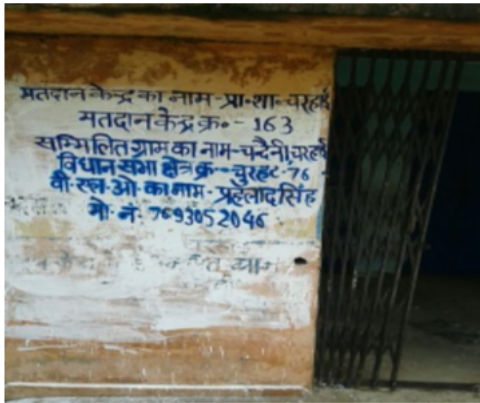 मतदान केन्द्र का नाम-प्रा॰शा॰ चरहाई
मतदान केन्द्र क्र॰- 163
सम्मिलित ग्राम का नाम-चन्दैनी,चरहाई
विधान सभा क्षेत्र क्र--चुरहट-76
बी-एल-ओ-का नाम-प्रहलाद सिंह
मो-नं- 7693052046